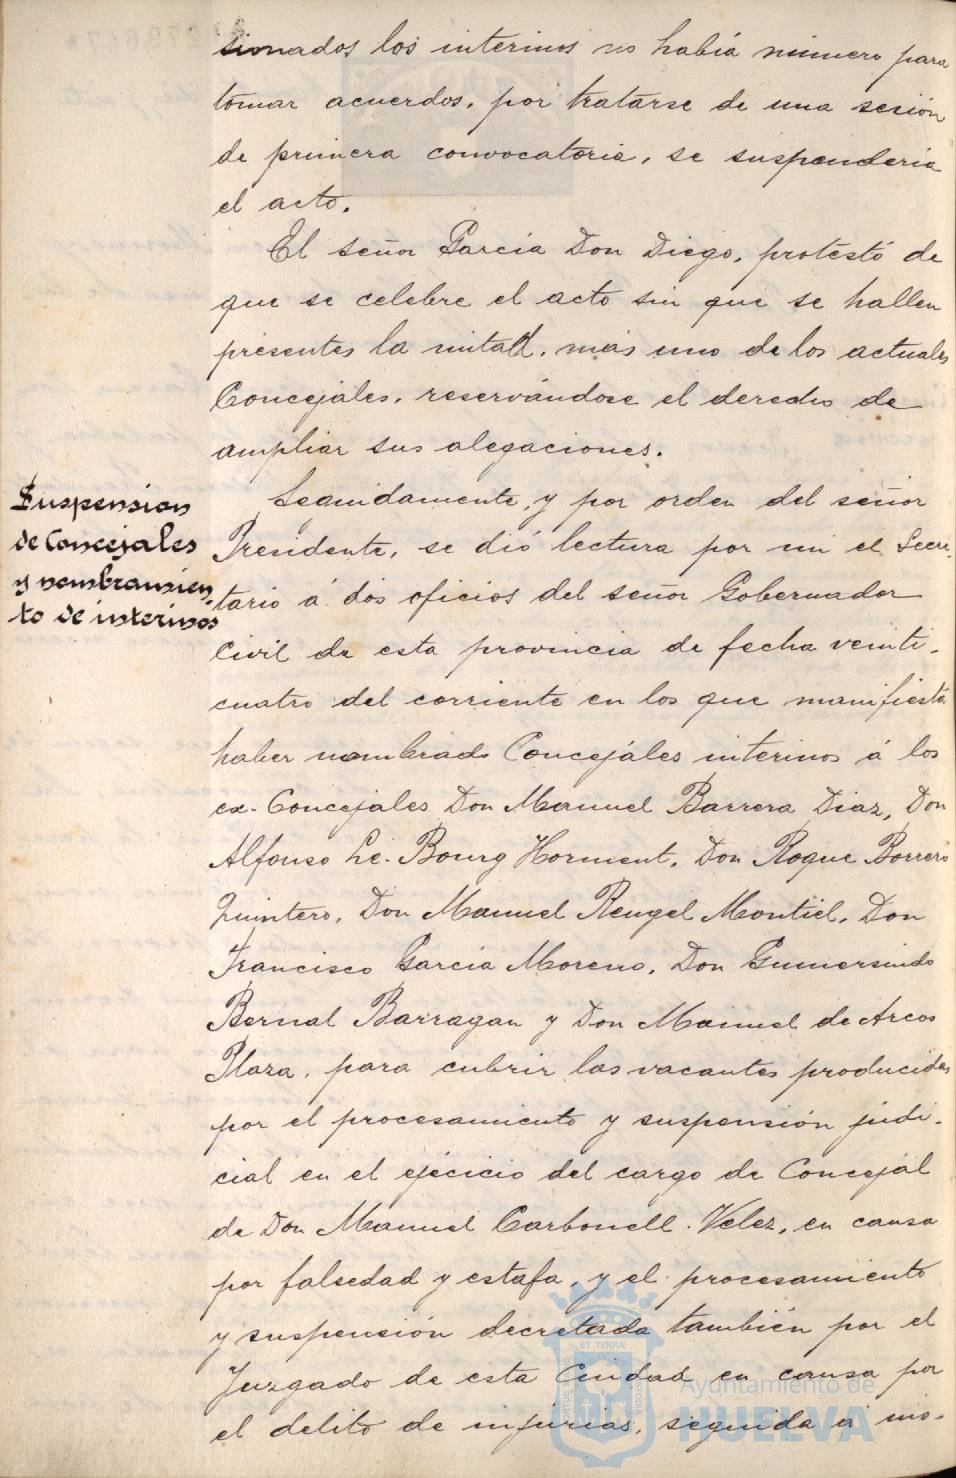 sionados los interinos no había número para
tomar acuerdos, por tratarse de una sesión
de primera convocatoria, se suspendería
el acto.
El señor García Don Diego, protestó de
que se celebre el acto sin que se hallen
presentes la mitad, más uno de los actuales
Concejales, reservándose el derecho de
ampliar sus alegaciones.
Suspension
de Concejales
y nombramien-
to de interinos
Seguidamente, y por orden del señor
Presidente, se dió lectura por mi el Secre-
tario á dos oficios del señor Gobernador
Civil de esta provincia de fecha veinti-
cuatro del corriente en los que manifiesta
haber nombrado Concejales interinos á los
ex-Concejales Don Manuel Barrera Diaz, Don
Alfonso Le-Bourg Horment, Don Roque Borrero
Quintero, Don Manuel Rengel Montiel, Don
Francisco García Moreno, Don Gumersindo
Bernal Barragan y Don Manuel de Arcos
Plaza, para cubrir las vacantes producidas
por el procesamiento y suspensión judi-
cial en el ejécicio del cargo de Concejal
de Don Manuel Carbonell Velez, en causa
por falsedad y estafa, y el procesamiento
y suspensión decretada también por el
Juzgado de esta Ciudad en causa por
el delito de injurias, seguida á ins-
Ayuntamiento de
HUELVA